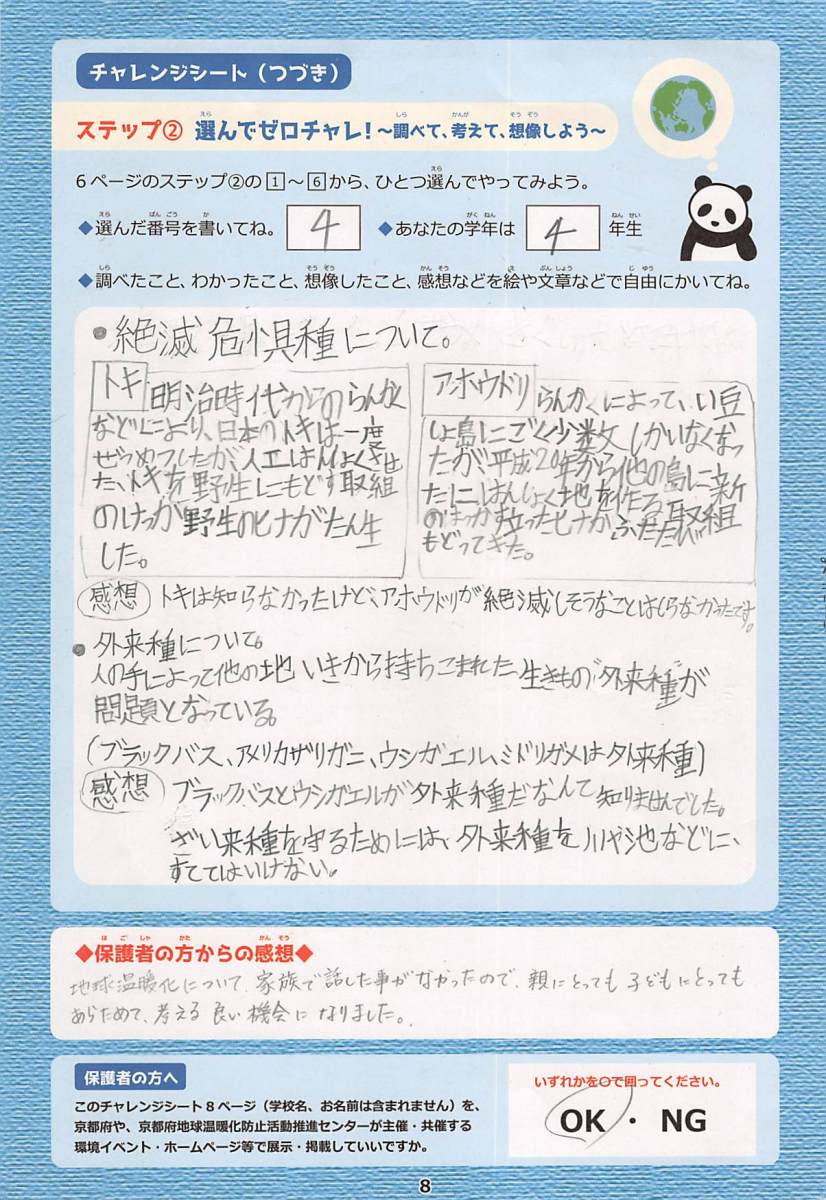 チャレンジシート（つづき）
ステップ② 選んでゼロチャレ！～調べて、考えて、想像しよう～
6ページのステップ②の1～6から、ひとつ選んでやってみよう。
◆選んだ番号を書いてね。 4 ◆あなたの学年は 4 年生
◆調べたこと、わかったこと、想像したこと、感想などを絵や文章などで自由にかいてね。
●絶滅危惧種について。
トキ 明治時代からのらんかく
などにより、日本のトキは一度
ぜつめつしたが、人工はんしょくさせ
た、トキを野生にもどす取組
のけっか野生のヒナがたん生
した。
アホウドリ らんかくによって、い豆
しょ島にごく少数しかいなくなっ
たが、平成20年から他の島に新
たにはんしょく地を作る取組
のけっかす立ったヒナがふたたび
もどってきた。
感想 トキは知らなかったけど、アホウドリが絶滅しそうなことはしらなかったです。
●外来種について。
人の手によって他の地いきから持ちこまれた生きもの"外来種"が
問題となっている。
(ブラックバス、アメリカザリガニ、ウシガエル、ミドリガメは外来種)
感想 ブラックバスとウシガエルが外来種だなんて知りませんでした。
ざい来種を守るためには、外来種を川や池などに、
すててはいけない。
◆保護者の方からの感想◆
地球温暖化について、家族で話した事がなかったので、親にとっても子どもにとっても
あらためて、考える良い機会になりました。
保護者の方へ
このチャレンジシート8ページ（学校名、お名前は含まれません）を、
京都府や、京都府地球温暖化防止活動推進センターが主催・共催する
環境イベント・ホームページ等で展示・掲載していいですか。
いずれかを○で囲ってください。
OK ・ NG
8